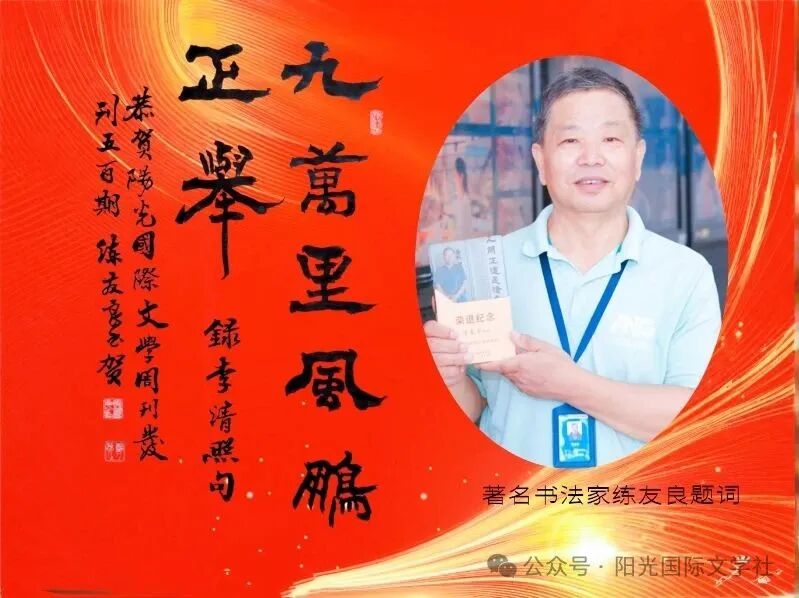 九萬里風鵬
正舉
錄李清照句
恭賀陽光國際文學周刊發
刊五百期 练友良书贺
荣退纪念
著名书法家练友良题词
公众号·阳光国际文学社